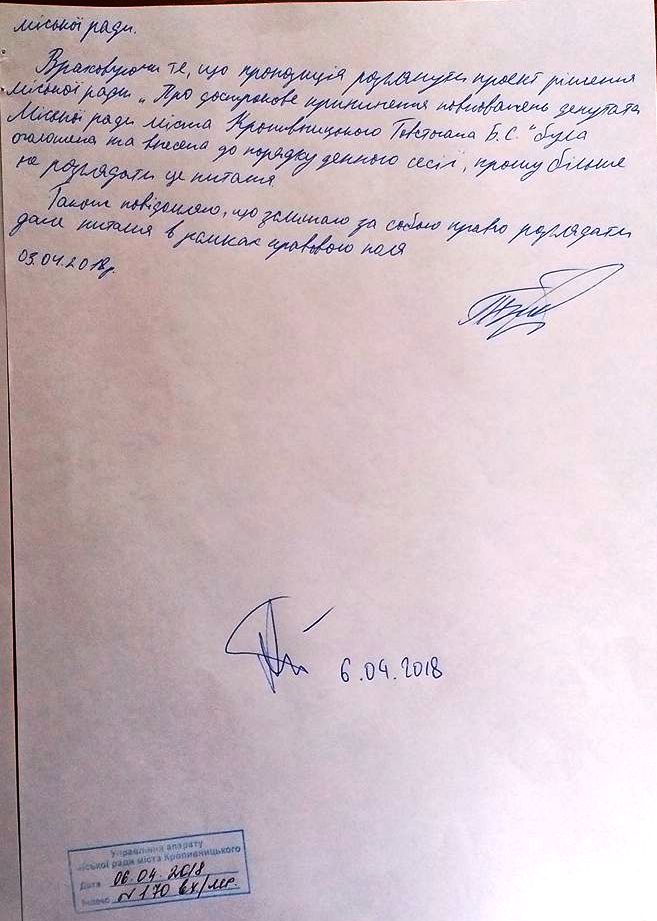 міської ради.
Враховуючи те, що пропозиція розглянути проект рішення
міської ради „Про дострокове припинення повноважень депутата
Міської ради міста Кропивницького Товстогана Б.С." була
оголошена та внесена до порядку денного сесії, прошу більше
не розглядати це питання.
Також повідомляю, що залишаю за собою право розглядати
дане питання в рамках правового поля
03.04.2018р.
6.04.2018
Управління апарату
міської ради міста Кропивницького
Дата 06.04.2018
Індекс № 170 вх/мр.